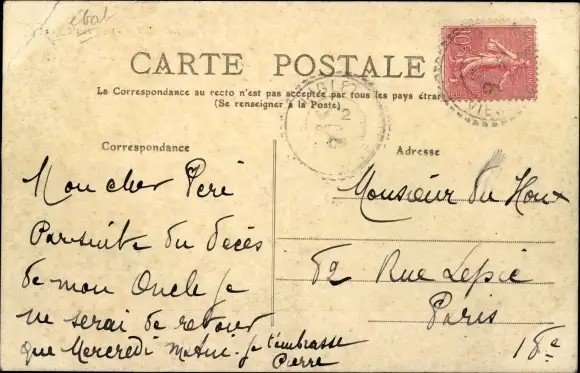 ébat
CARTE POSTALE
La Correspondance au recto n'est pas acceptée par tous les pays étran
(Se renseigner à la Poste)
Correspondance
Mon cher Péré
Parsuite du decès
de mon Oncle je
ne serai de retour
que Mercredi Matin. je t'embrasse
Pierre
Adresse
Monsieur du Houx
82 Rue Lepic
Paris
18e
10c